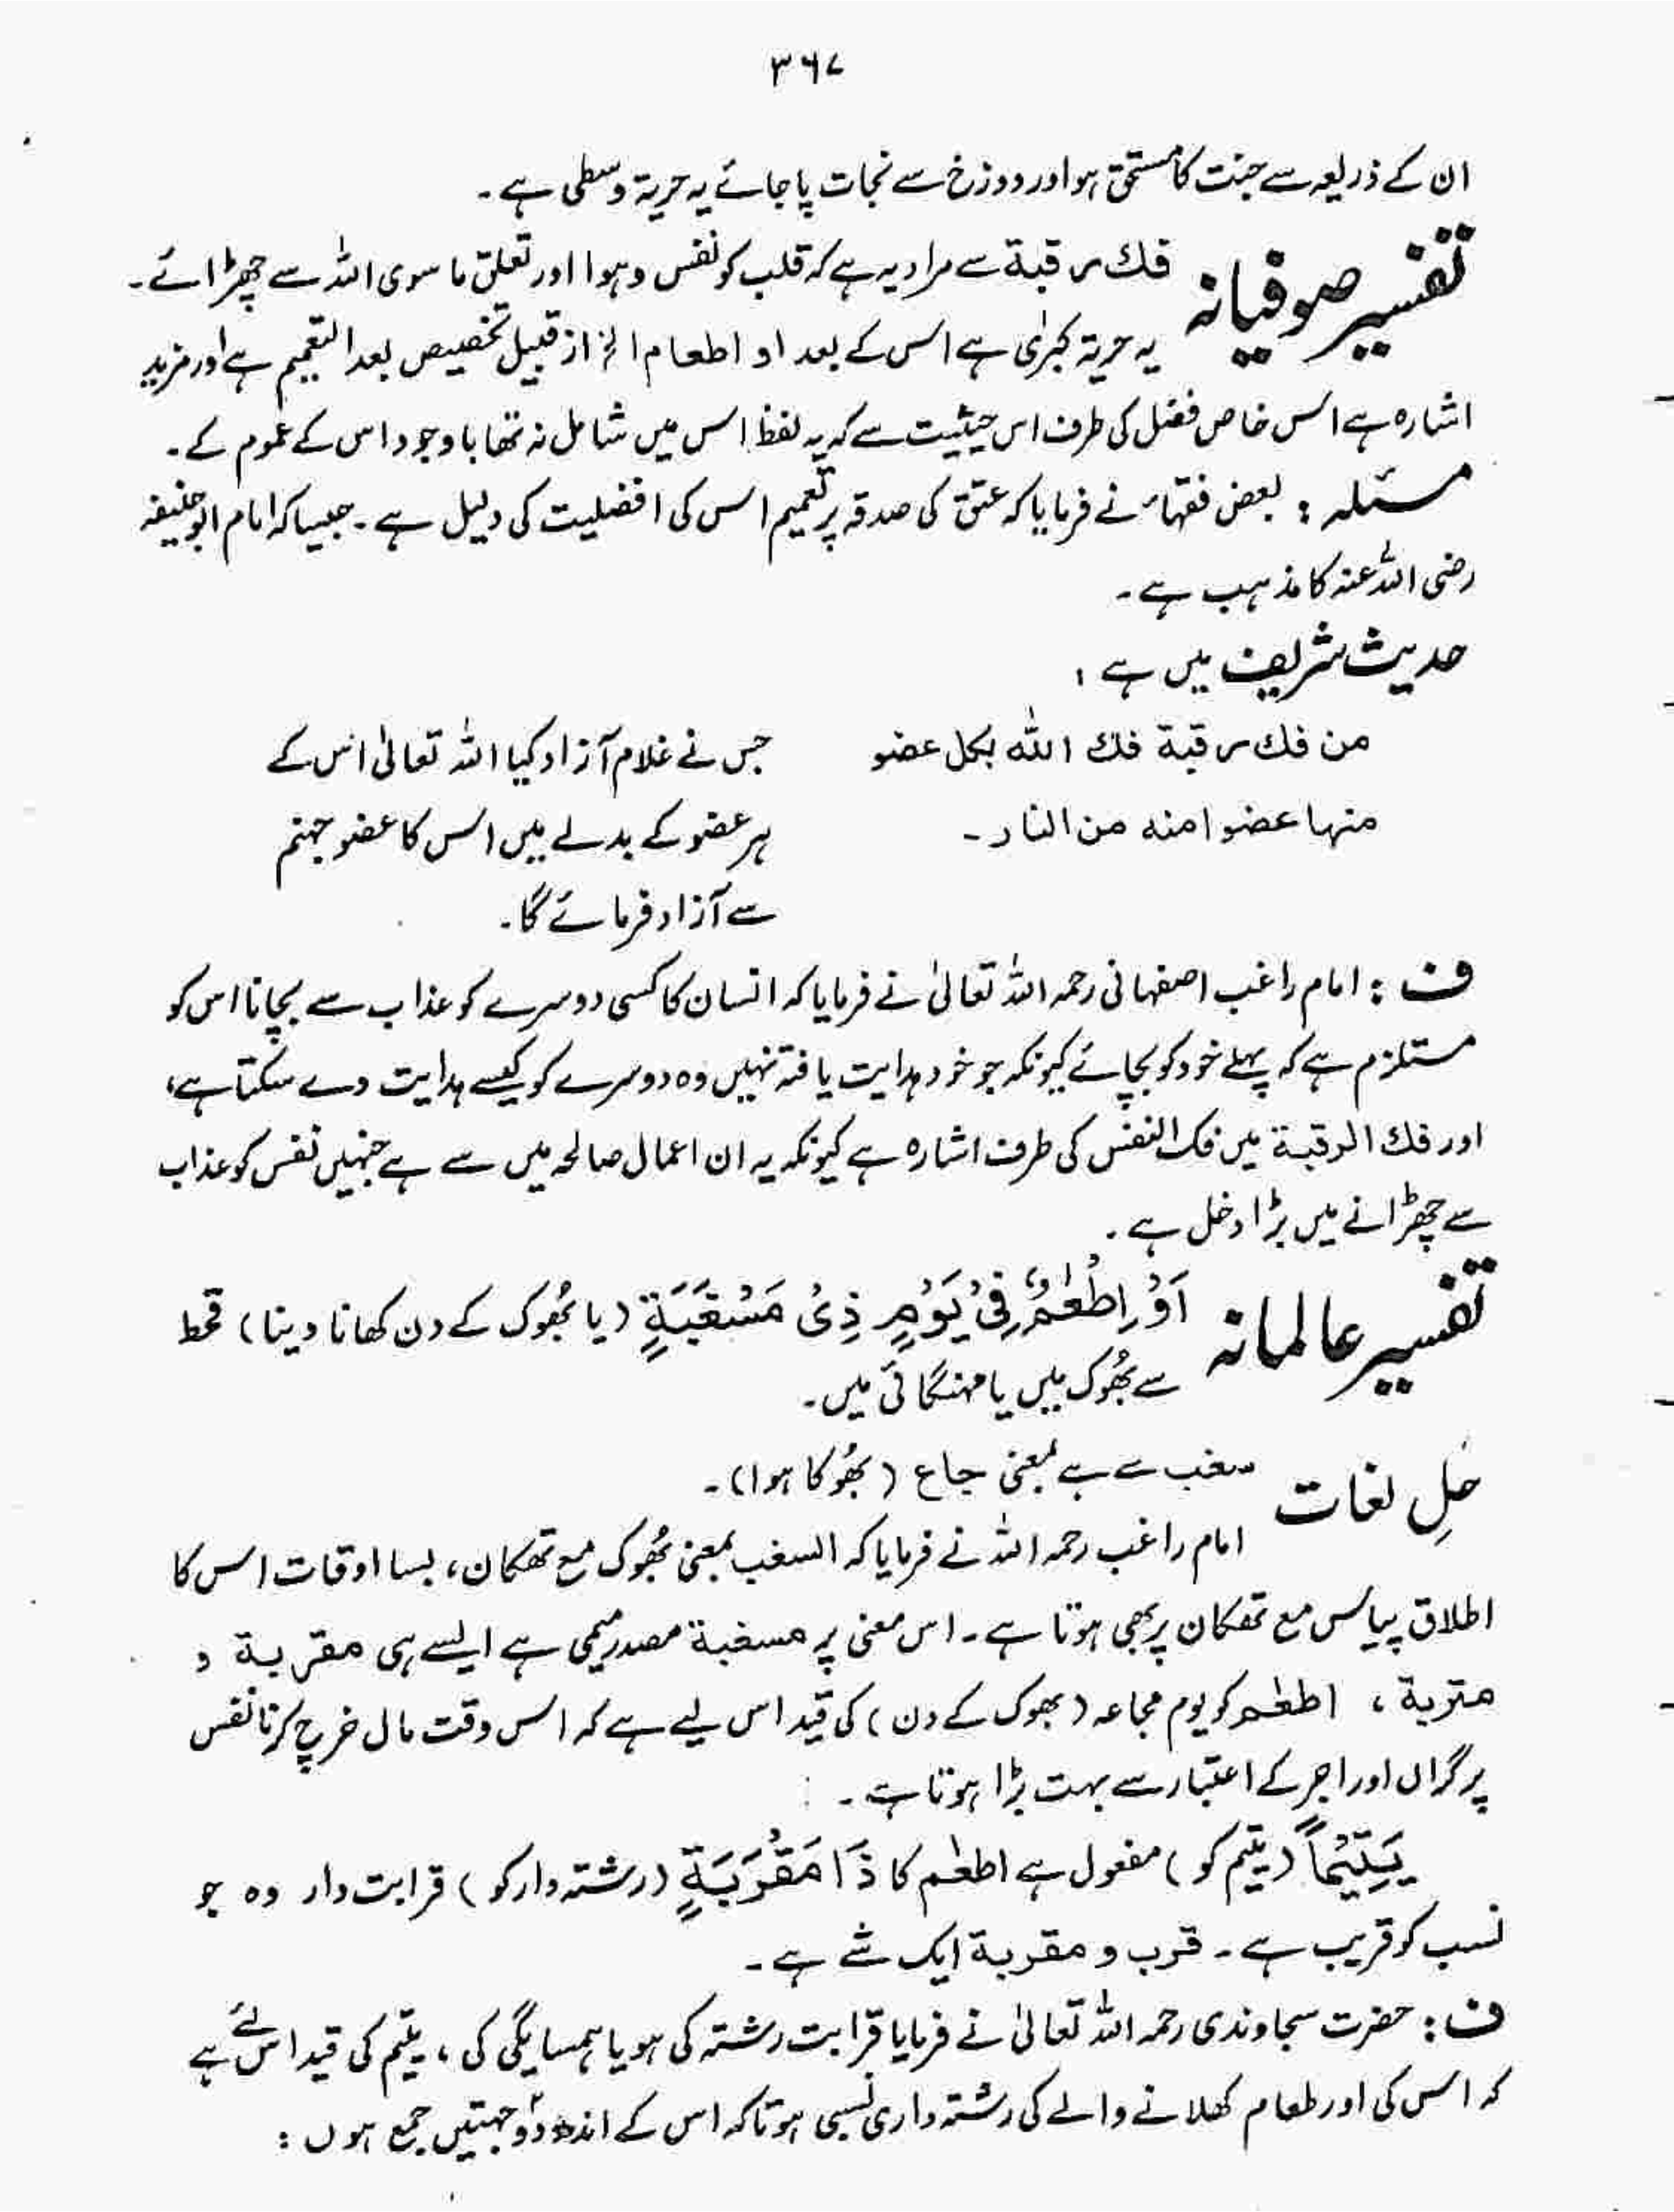 ۳۶۷
ان کے ذریعہ سے جنت کا مستحق ہو اور دوزخ سے نجات پا جائے یہ حریۃ وسطی ہے۔
تفسیر صوفیانہ فك رقبة سے مراد یہ ہے کہ قلب کو نفس و ہوا اور تعلق ما سوی اللہ سے چھڑائے۔
یہ حریۃ کبرٰی ہے اس کے بعد او اطعام الخ از قبیل تخصیص بعد التعمیم ہے اور مزید
اشارہ ہے اس خاص فضل کی طرف اس حیثیت سے کہ یہ لفظ اس میں شامل نہ تھا باوجود اس کے عموم کے۔
مسئلہ : بعض فقہاء نے فرمایا کہ عتق کی صدقہ پر تعمیم اس کی افضلیت کی دلیل ہے۔ جیسا کہ امام ابوحنیفہ
رضی اللہ عنہ کا مذہب ہے۔
حدیث شریف میں ہے :
من فك رقبة فك الله بكل عضو
منها عضوا منه من النار۔
جس نے غلام آزاد کیا اللہ تعالیٰ اس کے
ہر عضو کے بدلے میں اس کا عضو جہنم
سے آزاد فرمائے گا۔
ف : امام راغب اصفہانی رحمہ اللہ تعالیٰ نے فرمایا کہ انسان کا کسی دوسرے کو عذاب سے بچانا اس کو
مستلزم ہے کہ پہلے خود کو بچائے کیونکہ جو خود ہدایت یافتہ نہیں وہ دوسرے کو کیسے ہدایت دے سکتا ہے،
اور فك الرقبة میں فک النفس کی طرف اشارہ ہے کیونکہ یہ ان اعمال صالحہ میں سے ہے جنہیں نفس کو عذاب
سے چھڑانے میں بڑا دخل ہے۔
تفسیر عالمانہ اَوْ اِطْعٰمٌ فِیْ یَوْمٍ ذِیْ مَسْغَبَةٍ (یا بُھوک کے دن کھانا دینا) قحط
سے بُھوک میں یا مہنگائی میں۔
حَلِ لغات سغب سے ہے بمعنی جاع (بُھوکا ہوا)۔
امام راغب رحمہ اللہ نے فرمایا کہ السغب بمعنی بُھوک مع تھکان، بسا اوقات اس کا
اطلاق پیاس مع تھکان پر بھی ہوتا ہے۔ اس معنی پر مسغبة مصدر میمی ہے ایسے ہی مقربة و
متربة ، اطعٰم کو یوم مجاعہ (بھوک کے دن) کی قید اس لیے ہے کہ اس وقت مال خرچ کرنا نفس
پر گراں اور اجر کے اعتبار سے بہت بڑا ہوتا ہے۔
یَتِیْمًا (یتیم کو) مفعول ہے اطعٰم کا ذَا مَقْرَبَةٍ (رشتہ دار کو) قرابت دار وہ جو
نسب کو قریب ہے۔ قرب و مقربة ایک شے ہے۔
ف : حضرت سجاوندی رحمہ اللہ تعالیٰ نے فرمایا قرابت رشتہ کی ہو یا ہمسایگی کی، یتیم کی قید اس لئے ہے
کہ اس کی اور طعام کھلانے والے کی رشتہ داری نسبی ہو تاکہ اس کے اندر دو جہتیں جمع ہوں :